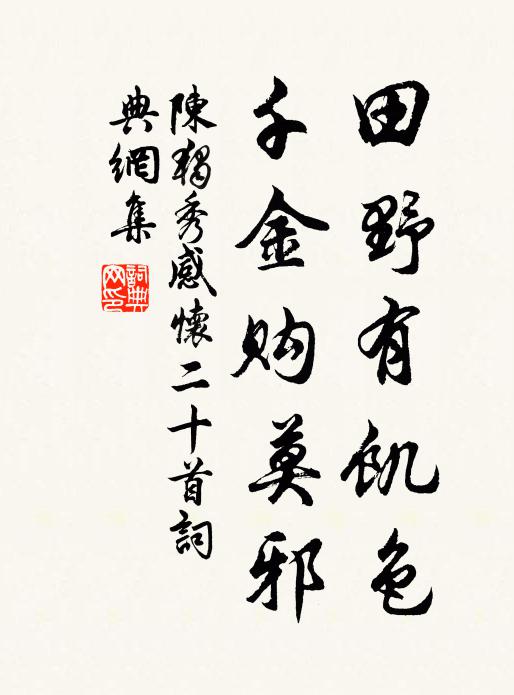 田野有飢色
千金购莫邪
陳獨秀感懷二十首詞
典網集
詞典
网印